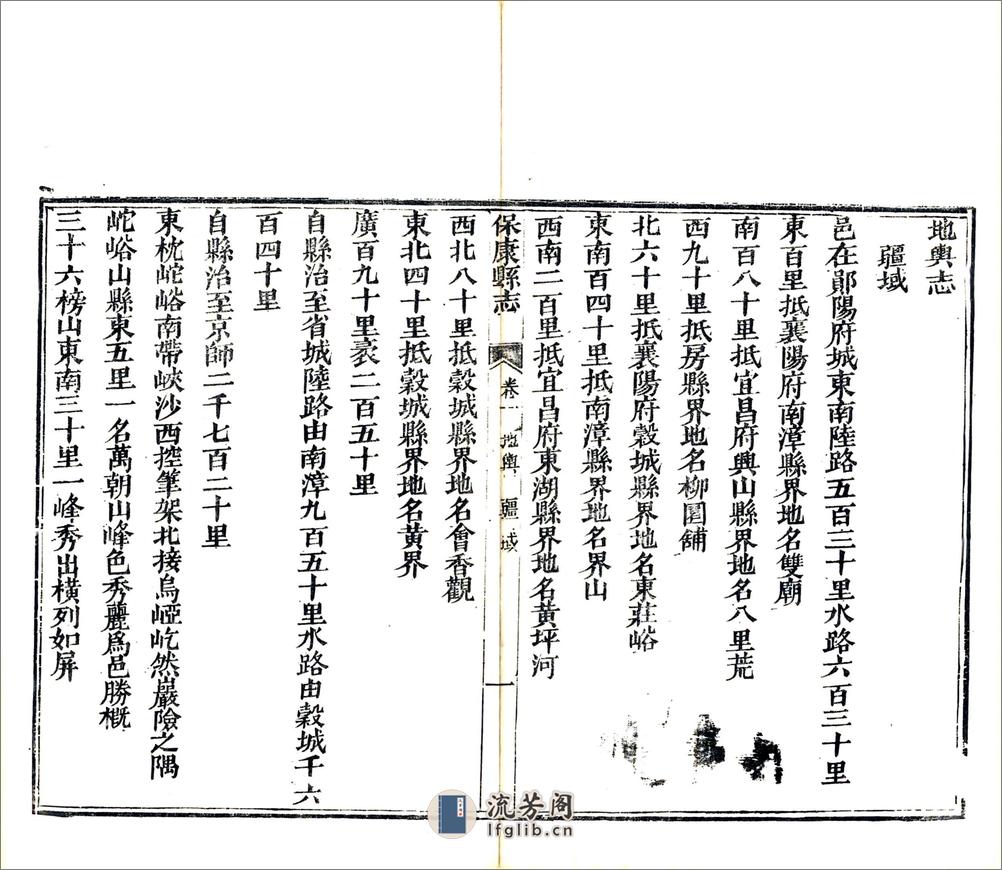 地輿志
疆域
邑在鄖陽府城東南陸路五百三十里水路六百三十里
東百里抵襄陽府南漳縣界地名雙廟
南百八十里抵宜昌府興山縣界地名八里荒
西九十里抵房縣界地名柳園舖
北六十里抵襄陽府穀城縣界地名東莊峪
東南百四十里抵南漳縣界地名界山
西南二百里抵宜昌府東湖縣界地名黃坪河
保康縣志
卷一 地輿 疆域
一
西北八十里抵穀城縣界地名會香觀
東北四十里抵穀城縣界地名黃界
廣百九十里袤二百五十里
自縣治至省城陸路由南漳九百五十里水路由穀城千六
百四十里
自縣治至京師二千七百二十里
東枕岮峪南帶峽沙西控筆架北接烏啞屹然巖險之隅
岮峪山縣東五里一名萬朝山峰色秀麗為邑勝概
三十六榜山東南三十里一峰秀出橫列如屏
流芳阁
lfglib.cn